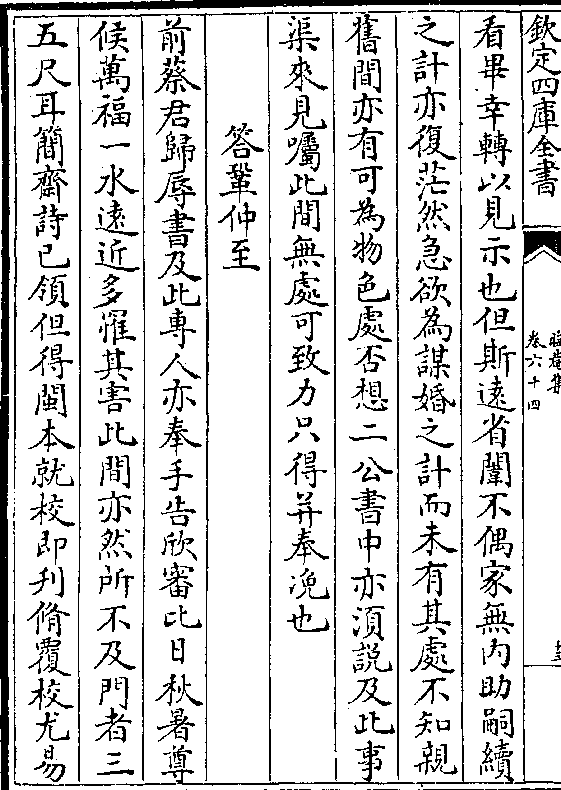 欽定四庫全書
晦菴集
卷六十四
看畢幸轉以見示也但斯遠省闈不偶家無内助嗣續
之計亦復茫然急欲為謀婚之計而未有其處不知親
舊間亦有可為物色處否想二公書中亦湏説及此事
渠來見囑此間無處可致力只得并奉凂也
答鞏仲至
前蔡君歸辱書及此専人亦奉手告欣審比日秋暑尊
候萬福一水逺近多罹其害此間亦然所不及門者三
五尺耳簡齋詩已領但得閩本就校即刋脩覆校尤易